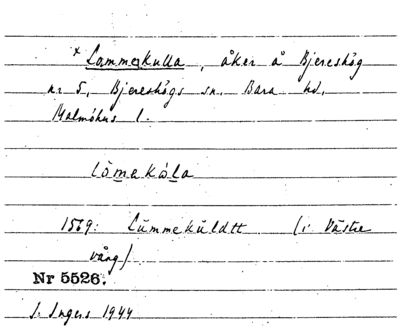 × Lammekulla, åker å Bjereshög
nr 5, Bjereshögs sn. Bara hd,
Malmöhus l.
lòmekóla
1569: Lümmeküldtt (i Västre
vång)
Nr 5526.
I. Ingers 1944